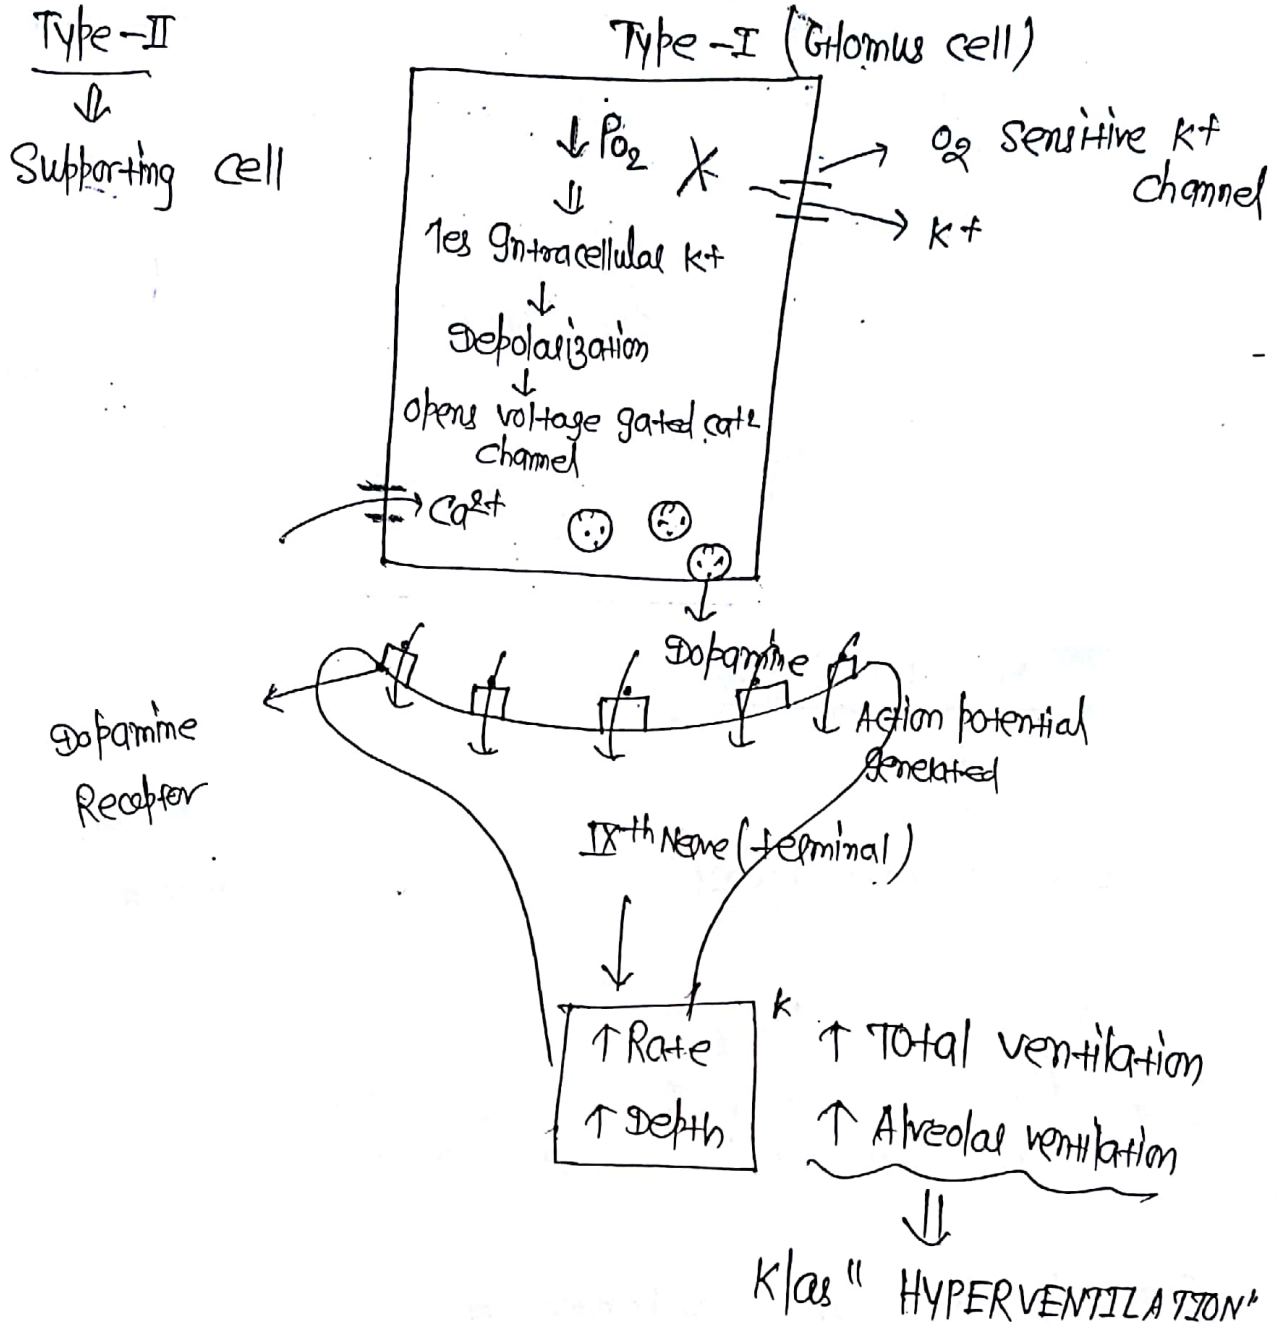 Type-II
Supporting cell
Type-I (Glomus cell)
↓ PO2
1es Intracellular K+
Depolarization
opens voltage gated Ca+2
channel
Ca2+
O2 sensitive K+
channel
K+
Dopamine
Dopamine
Receptor
Action potential
generated
IXth Nerve (terminal)
↑ Rate
↑ Depth
K
↑ Total ventilation
↑ Alveolar ventilation
K/as "HYPERVENTILATION"